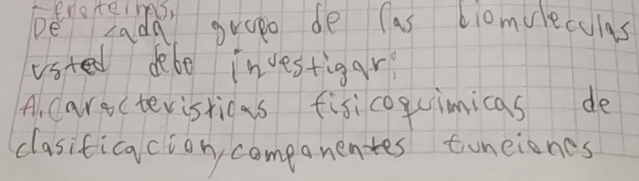 Proteinas,
De cada grupo de las biomuleculas
usted debe investigar:
A. Caracteristicas fisicoquimicas de
clasificacion, companentes funciones